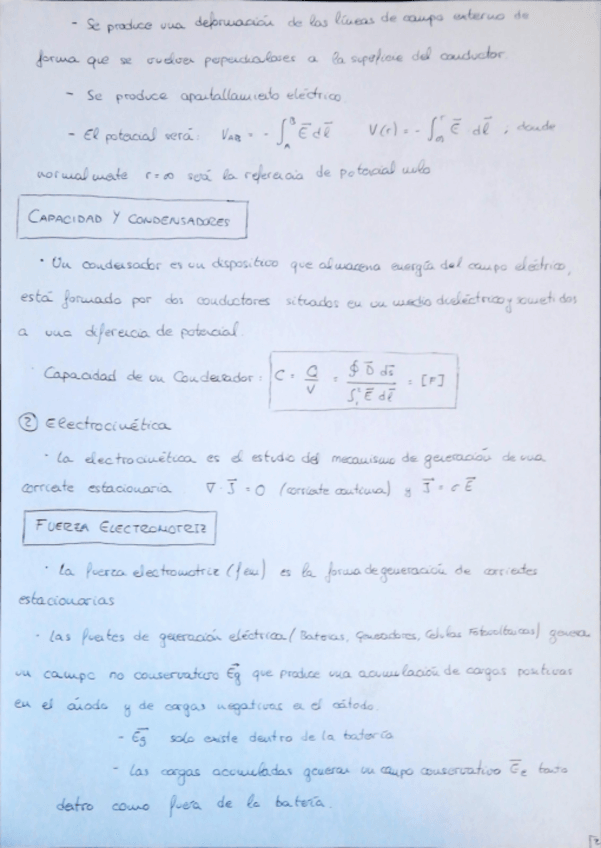 - Se produce una deformación de las líneas de campo externo de
forma que se vuelven perpendiculares a la superficie del conductor.
- Se produce apantallamiento eléctrico.
- El potencial será: V_AB = - ∫_A^B E⃗ dl⃗   V(r) = - ∫_∞^r E⃗ · dl⃗, donde
normalmente r=∞ será la referencia de potencial nulo
CAPACIDAD Y CONDENSADORES
· Un condensador es un dispositivo que almacena energía del campo eléctrico,
está formado por dos conductores situados en un medio dieléctrico y sometidos
a una diferencia de potencial.
· Capacidad de un Condensador: C = Q/V = ∮ D⃗ ds⃗ / ∫_1^2 E⃗ dl⃗ = [F]
② Electrocinética
· La electrocinética es el estudio del mecanismo de generación de una
corriente estacionaria ∇ · J⃗ = 0 (corriente continua) y J⃗ = σ E⃗
FUERZA ELECTROMOTRIZ
· La fuerza electromotriz (fem) es la forma de generación de corrientes
estacionarias
· Las fuentes de generación eléctrica (Baterías, Generadores, Células Fotovoltaicas) genera
un campo no conservativo E⃗g que produce una acumulación de cargas positivas
en el ánodo y de cargas negativas en el cátodo.
- E⃗g solo existe dentro de la batería
- Las cargas acumuladas generan un campo conservativo E⃗e tanto
dentro como fuera de la batería.